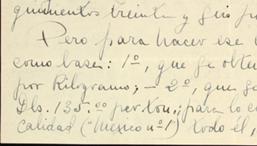 quinientos treinta y seis p
Pero para hacer ese
como bases: 1º, que se obte
por Kilogramo; - 2º, que se
Dls. 135.00 per ton.; para lo c
Calidad ("Mexico nº 1) todo él,